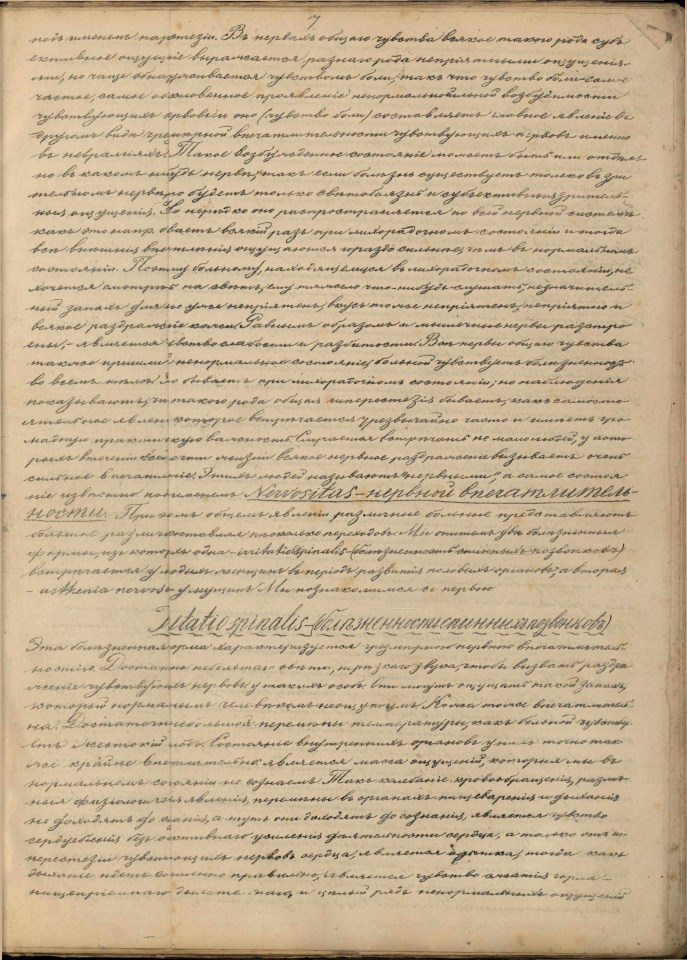 7
подъ именемъ парэстезіи. Въ нервахъ общаго чувства всякое такого рода субъ
ективное ощущеніе выражается разнаго рода непріятными ощущенія
ми, но чаще обнаруживается чувствомъ боли, такъ что чувство боли самое
частое, самое обыкновенное проявленіе ненормальной возбудимости
чувствующихъ нервовъ и оно (чувство боли) составляетъ главное явленіе въ
другомъ видѣ чрезмѣрной впечатлительности чувствующихъ нервовъ именно
въ невралгіяхъ. Такое возбужденное состояніе можетъ быть или отдѣль
но въ какомъ нибудь нервѣ, такъ если болѣзнь существуетъ только въ зри
тельномъ нервѣ, то будетъ только свѣтобоязнь и субъективныя зритель-
ныя ощущенія. Но нерѣдко оно распространяется по всей нервной системѣ
какъ это напр. бываетъ всякій разъ при лихорадочномъ состояніи и тогда
всѣ внѣшнія впечатлѣнія ощущаются гораздо сильнее, чѣмъ въ нормальномъ
состояніи. Поэтому больному, находящемуся въ лихорадочномъ состояніи, не
хочется смотрѣть на свѣтъ, ему тяжело что-нибудь слушать, незначитель-
ный запахъ для него уже непріятенъ, вкусъ тоже непріятенъ, непріятно и
всякое раздраженіе кожи. Равнымъ образомъ и мышечные нервы разстро
ены, - является чувство слабости и разбитости. Всѣ нервы общаго чувства
также приняли ненормальное состояніе, больной чувствуетъ болѣзненность
во всемъ тѣлѣ. То бываетъ при лихорадочномъ состояніи; но наблюденія
показываютъ, что такого рода общая гиперестезія бываетъ, какъ самосто
ятельное явленіе которое встрѣчается чрезвычайно часто и имѣетъ гро
мадную практическую важность. Случается встрѣчать не мало людей, у кото
рыхъ въ теченіи всей жизни всякое нервное раздраженіе вызываетъ очень
сильное впечатлѣніе. Этихъ людей называютъ "нервными", а самое состоя
ніе извѣстно подъ именемъ Nervositas - нервной впечатлитель-
ности. При чемъ общемъ явленіи различные больные представляютъ
большое различіе составляя нѣсколько переходовъ. Мы опишемъ двѣ болѣзненныя
формы, изъ которыхъ одна - irritatio spinalis - (болѣзненность спинныхъ позвонковъ)
встрѣчается у молодыхъ женщинъ въ періодъ развитія половыхъ органовъ, а вторая
- asthenia nervosa у мущинъ. Мы познакомимся съ первою
Iritatio spinalis - (болѣзненность спинныхъ позвонковъ)
Эта болѣзненная форма характеризуется чрезмѣрною нервною впечатлитель-
ностью. Достаточно небольшаго свѣта, нерѣзкаго звука, чтобы вызвать раздра
женіе чувствующихъ нервовъ у такихъ особъ. Они могутъ ощущать такой запахъ,
который нормальнымъ человѣкомъ неощутимъ. Кожа тоже впечатлитель-
на. Достаточно небольшой перемѣны температуры, какъ больной чувству
етъ жестокій ознобъ. Состояніе внутреннихъ органовъ у нихъ точно так
же крайне впечатлительно. является масса ощущеній, которыя мы въ
нормальномъ состояніи не сознаемъ. Такъ колебаніе кровообращенія, разли
ныя физіологическія явленія, перемѣны въ органахъ пищеваренія и дыханія
не доходятъ до сознанія, а тутъ они доходятъ до сознанія, является чувство
сердцебіенія безъ объективнаго усиленія дѣятельности сердца, а только отъ ги-
перестезіи чувствующихъ нервовъ сердца, является одышка, тогда какъ
дыханіе идетъ совершенно правильно, является чувство сжатія горла -
и цѣлый рядъ ненормальныхъ ощущеній